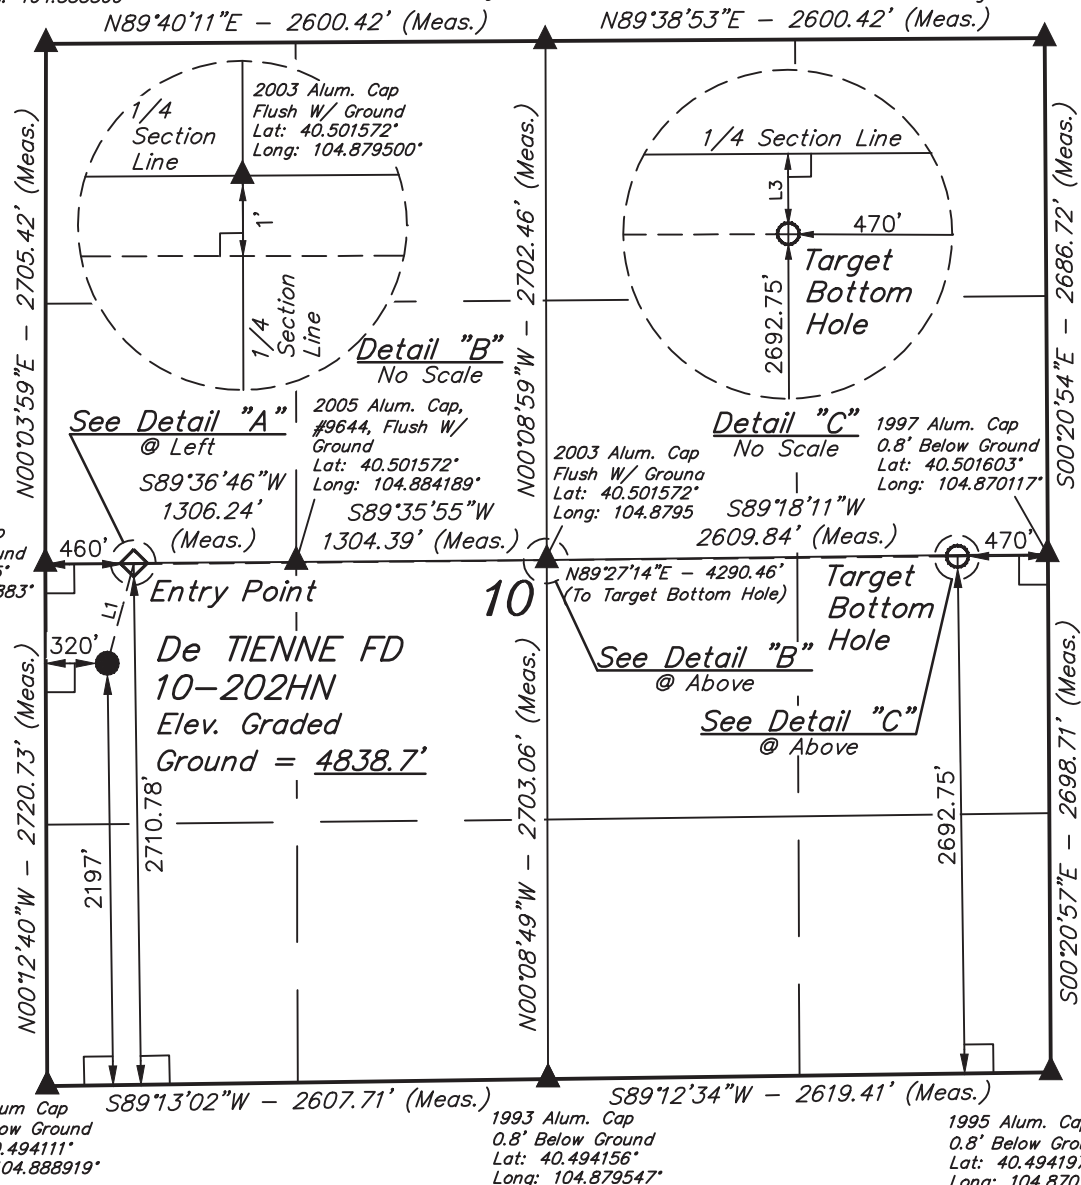 N89°40'11"E - 2600.42' (Meas.)
N89°38'53"E - 2600.42' (Meas.)
N00°03'59"E - 2705.42' (Meas.)
1/4
Section
Line
2003 Alum. Cap
Flush W/ Ground
Lat: 40.501572°
Long: 104.879500°
1'
1/4
Section
Line
Detail "B"
No Scale
N00°08'59"W - 2702.46' (Meas.)
1/4 Section Line
L3
470'
Target
Bottom
Hole
2692.75'
Detail "C"
No Scale
S00°20'54"E - 2686.72' (Meas.)
See Detail "A"
@ Left
2005 Alum. Cap,
#9644, Flush W/
Ground
Lat: 40.501572°
Long: 104.884189°
2003 Alum. Cap
Flush W/ Ground
Lat: 40.501572°
Long: 104.8795
1997 Alum. Cap
0.8' Below Ground
Lat: 40.501603°
Long: 104.870117°
S89°36'46"W
1306.24'
(Meas.)
S89°35'55"W
1304.39' (Meas.)
S89°18'11"W
2609.84' (Meas.)
460'
470'
883°
Entry Point
10
N89°27'14"E - 4290.46'
(To Target Bottom Hole)
Target
Bottom
Hole
L1
320'
De TIENNE FD
10-202HN
Elev. Graded
Ground = 4838.7'
See Detail "B"
@ Above
See Detail "C"
@ Above
N00°12'40"W - 2720.73' (Meas.)
2197'
2710.78'
N00°08'49"W - 2703.06' (Meas.)
2692.75'
S00°20'57"E - 2698.71' (Meas.)
S89°13'02"W - 2607.71' (Meas.)
S89°12'34"W - 2619.41' (Meas.)
um Cap
ow Ground
.494111°
04.888919°
1993 Alum. Cap
0.8' Below Ground
Lat: 40.494156°
Long: 104.879547°
1995 Alum. Cap
0.8' Below Grou
Lat: 40.494197
Long: 104.870